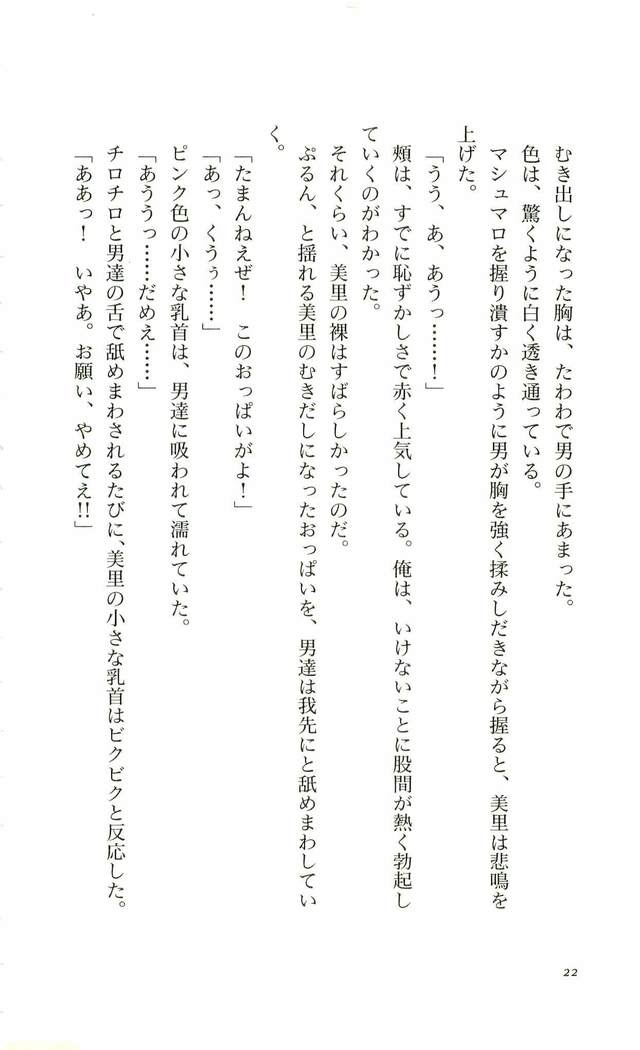 むき出しになった胸は、たわわで男の手にあまった。
色は、驚くように白く透き通っている。
マシュマロを握り潰すかのように男が胸を強く揉みしだきながら握ると、美里は悲鳴を
上げた。
「うう、あ、あうっ……！」
頬は、すでに恥ずかしさで赤く上気している。俺は、いけないことに股間が熱く勃起し
ていくのがわかった。
それくらい、美里の裸はすばらしかったのだ。
ぷるん、と揺れる美里のむきだしになったおっぱいを、男達は我先にと舐めまわしてい
く。
「たまんねえぜ！　このおっぱいがよ！」
「あっ、くうぅ……」
ピンク色の小さな乳首は、男達に吸われて濡れていた。
「あううっ……だめえ……」
チロチロと男達の舌で舐めまわされるたびに、美里の小さな乳首はビクビクと反応した。
「ああっ！　いやあ。お願い、やめてえ!!」
22